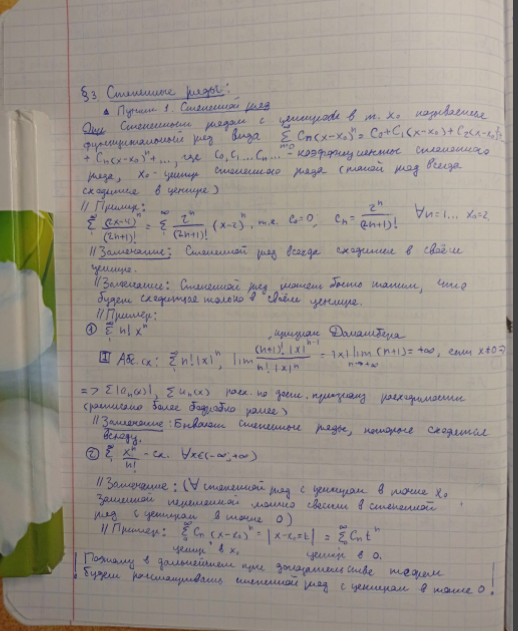 §3 Степенные ряды:
Пункт 1. Степенной ряд
Опр Степенным рядом с центром в т. x₀ называется
функциональный ряд вида ∑ Cₙ(x-x₀)ⁿ = C₀+C₁(x-x₀)+C₂(x-x₀)²
+ Cₙ(x-x₀)ⁿ+..., где C₀,C₁...Cₙ... - коэффициенты степенного
ряда, x₀ - центр степенного ряда (такой ряд всегда
сходится в центре)
// Пример:
∑ (2x-4)ⁿ/(2n+1)! = ∑ 2ⁿ/(2n+1)! (x-2)ⁿ, т.е. C₀=0, Cₙ= 2ⁿ/(2n+1)! ∀n=1... x₀=2.
// Замечание: Степенной ряд всегда сходится в своём
центре.
// Замечание: Степенной ряд может быть таким, что
будет сходиться только в своём центре.
// Пример:
① ∑ n! xⁿ
, признак Даламбера
Абс. сх: ∑ n! |x|ⁿ, lim (n+1)! |x|ⁿ⁺¹/n! |x|ⁿ = |x| lim (n+1) = +∞, если x≠0
n→+∞
=> ∑|aₙ(x)|, ∑ uₙ(x) расх. по признаку расходимости
более подробно ранее)
// Замечание: Бывают степенные ряды, которые сходятся
всюду.
② ∑ xⁿ/n! - сх. ∀x∈(-∞,+∞)
// Замечание: (∀ степенной ряд с центром в точке x₀
заменой переменной можно свести в степенной
ряд с центром в точке 0)
// Пример: ∑ Cₙ(x-x₀)ⁿ = |x-x₀=t| = ∑ Cₙtⁿ
центр в x₀ центр в 0.
Поэтому в дальнейшем при доказательстве теорем
будем рассматривать степенной ряд с центром в точке 0!